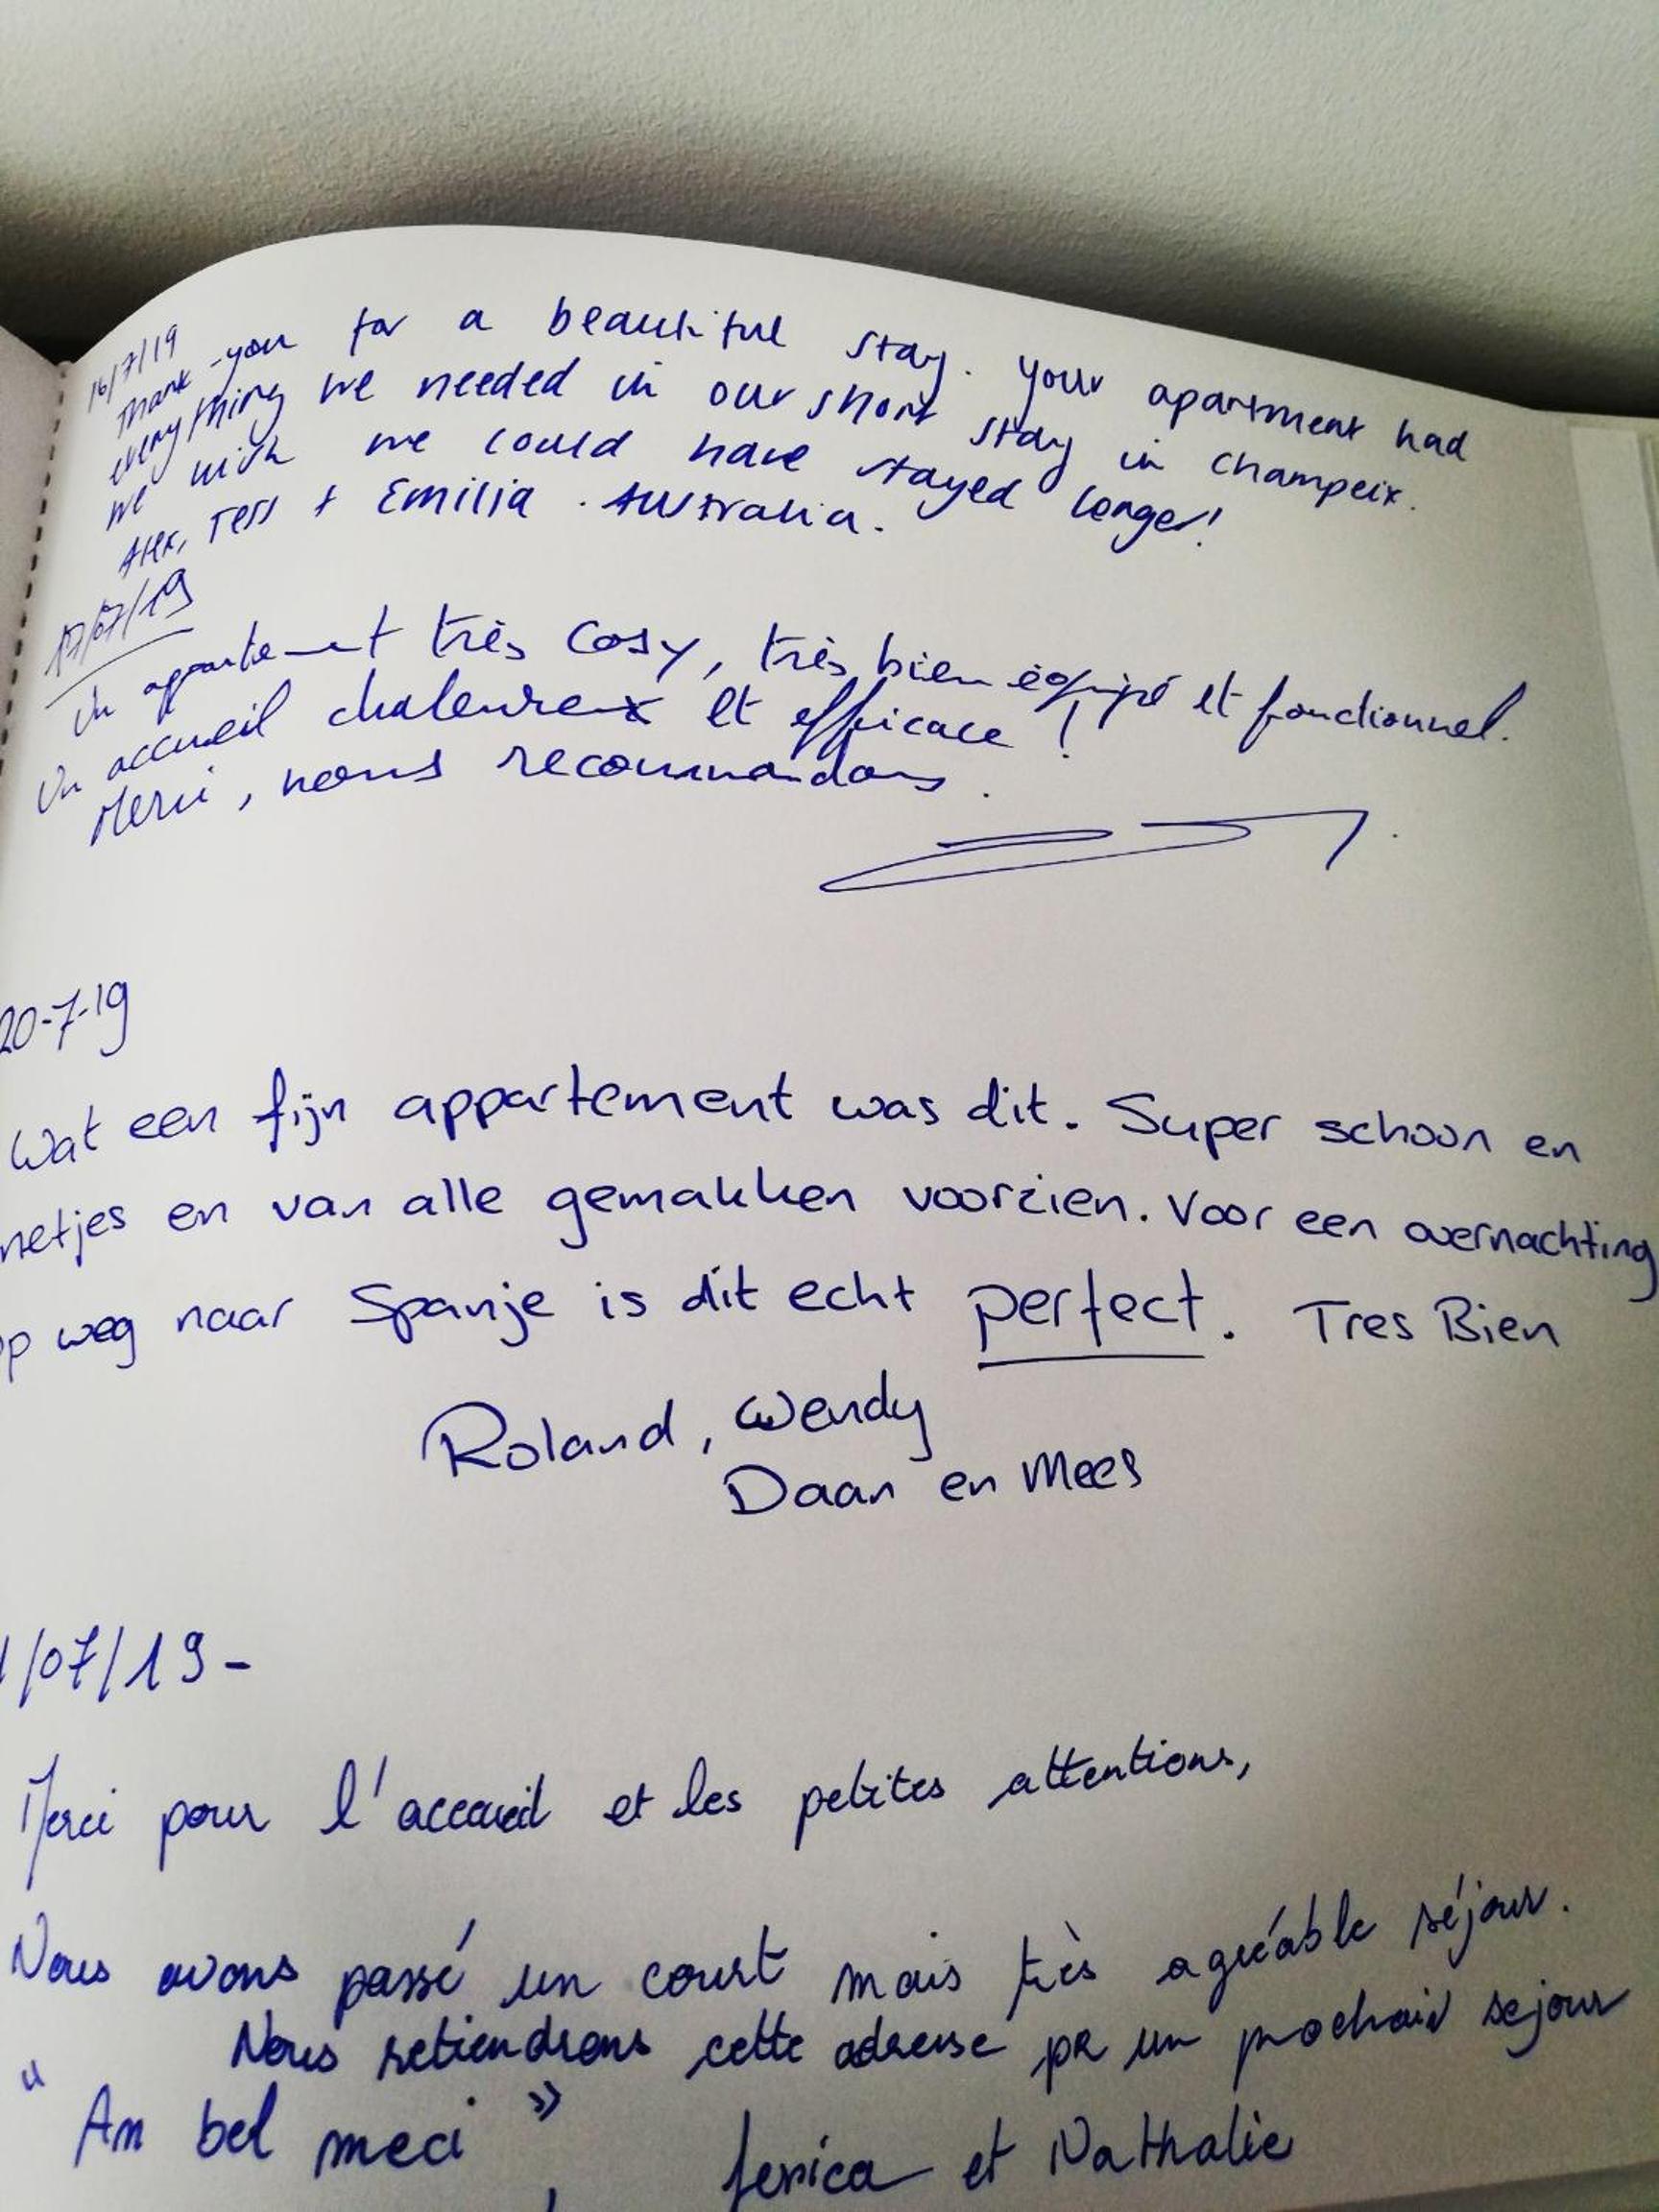 16/7/19
Thank-you for a beautiful stay. Your apartment had
everything we needed in our short stay in Champeix.
We wish we could have stayed longer!
Alex, Tess + Emilia. Australia.
17/07/19
Un appartement très cosy, très bien équipé et fonctionnel.
Un accueil chaleureux et efficace !
Merci, nous recommandons.
20-7-19
Wat een fijn appartement was dit. Super schoon en
netjes en van alle gemakken voorzien. Voor een overnachting
op weg naar Spanje is dit echt perfect. Tres Bien
Roland, Wendy
Daan en Mees
1/07/19 -
Merci pour l'accueil et les petites attentions,
Nous avons passé un court mais très agréable séjour.
Nous retiendrons cette adresse pr un prochain sejour
" An bel meci "
et Nathalie